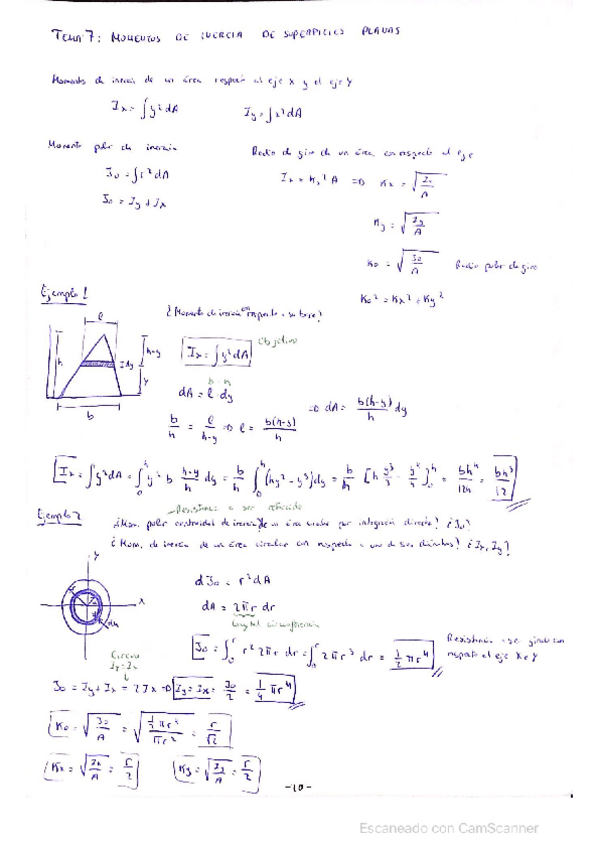 TEMA 7: MOMENTOS DE INERCIA DE SUPERFICIES PLANAS
Momento de inercia de un área respecto al eje x y el eje y
Ix = ∫y²dA Iy = ∫x²dA
Momento polar de inercia Radio de giro de un área con respecto al eje
J0 = ∫r²dA Ix = Kx² A => Kx = √(Ix/A)
J0 = Iy + Ix
Ky = √(Iy/A)
K0 = √(J0/A) Radio polar de giro
K0² = Kx² + Ky²
Ejemplo 1
¿Momento de inercia con respecto a su base?
l
h
h-y
dy
y
b
Ix = ∫y²dA Objetivo
dA = l dy
b/h = l/(h-y) => l = b(h-y)/h => dA = b(h-y)/h dy
Ix = ∫y²dA = ∫₀ʰ y² b (h-y)/h dy = b/h ∫₀ʰ (hy² - y³)dy = b/h [h y³/3 - y⁴/4]₀ʰ = bh⁴/12h = bh³/12
Resistencia a ser
Ejemplo 2
¿Mom. polar centroidal de inercia de un área circular por integración directa? ¿J0?
¿Mom. de inercia de un área circular con respecto a uno de sus diámetros? ¿Ix, Iy?
y
x
dJ0 = r²dA
dA = 2πr dr
longitud circunferencia
J0 = ∫₀ʳ r² 2πr dr = ∫₀ʳ 2πr³ dr = 1/2 πr⁴
Resistencia a ser girado con respecto al eje x e y
Círculo
Iy = Ix
J0 = Iy + Ix = 2Ix => Iy = Ix = J0/2 = 1/4 πr⁴
K0 = √(J0/A) = √(½πr⁴/πr²) = r/√2
Kx = √(Ix/A) = r/2 Ky = √(Iy/A) = r/2
-10-
Escaneado con CamScanner